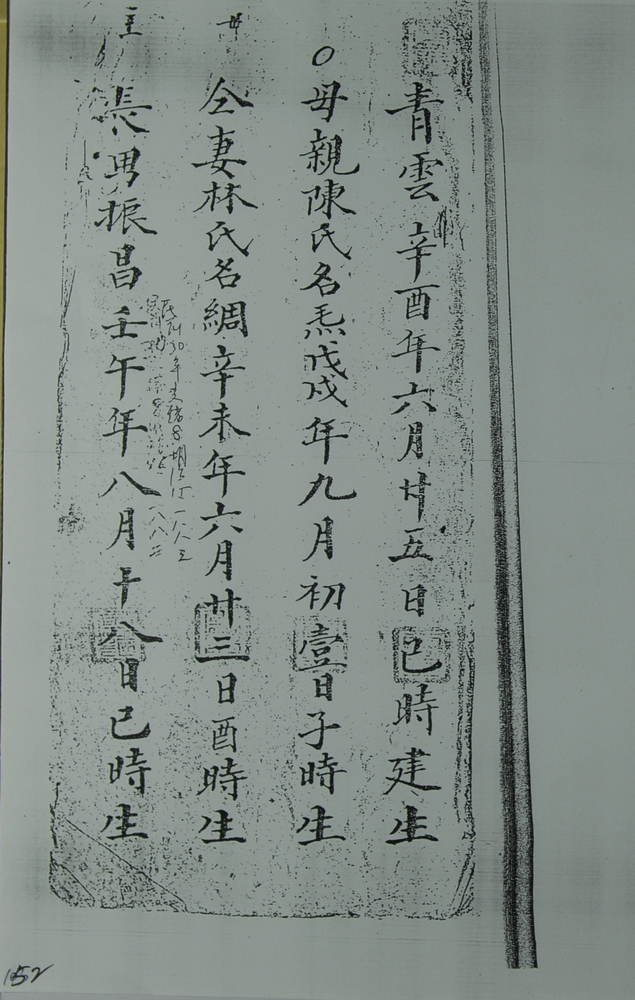 青雲辛酉年六月廿五日巳時建生
母親陳氏名𤆬戊戌年九月初壹日子時生
仝妻林氏名綢辛未年六月廿三日酉時生
長男振昌壬午年八月十八日巳時生
152